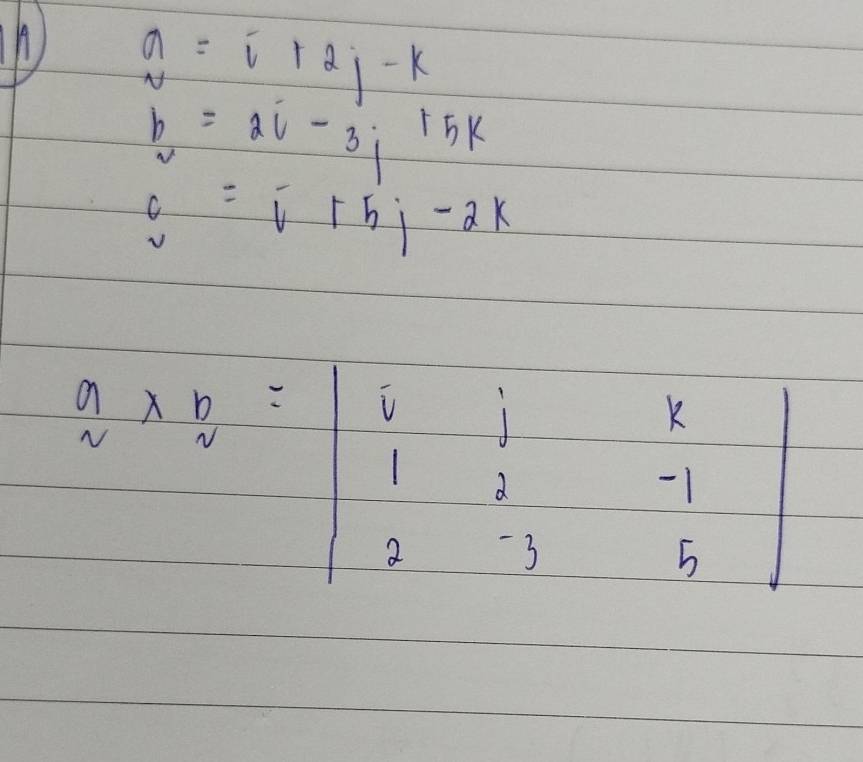 a = i + 2j - k
~
b = 2i - 3j + 5k
~
c = i + 5j - 2k
~
a × b = | i j k |
~ ~
| 1 2 -1 |
| 2 -3 5 |